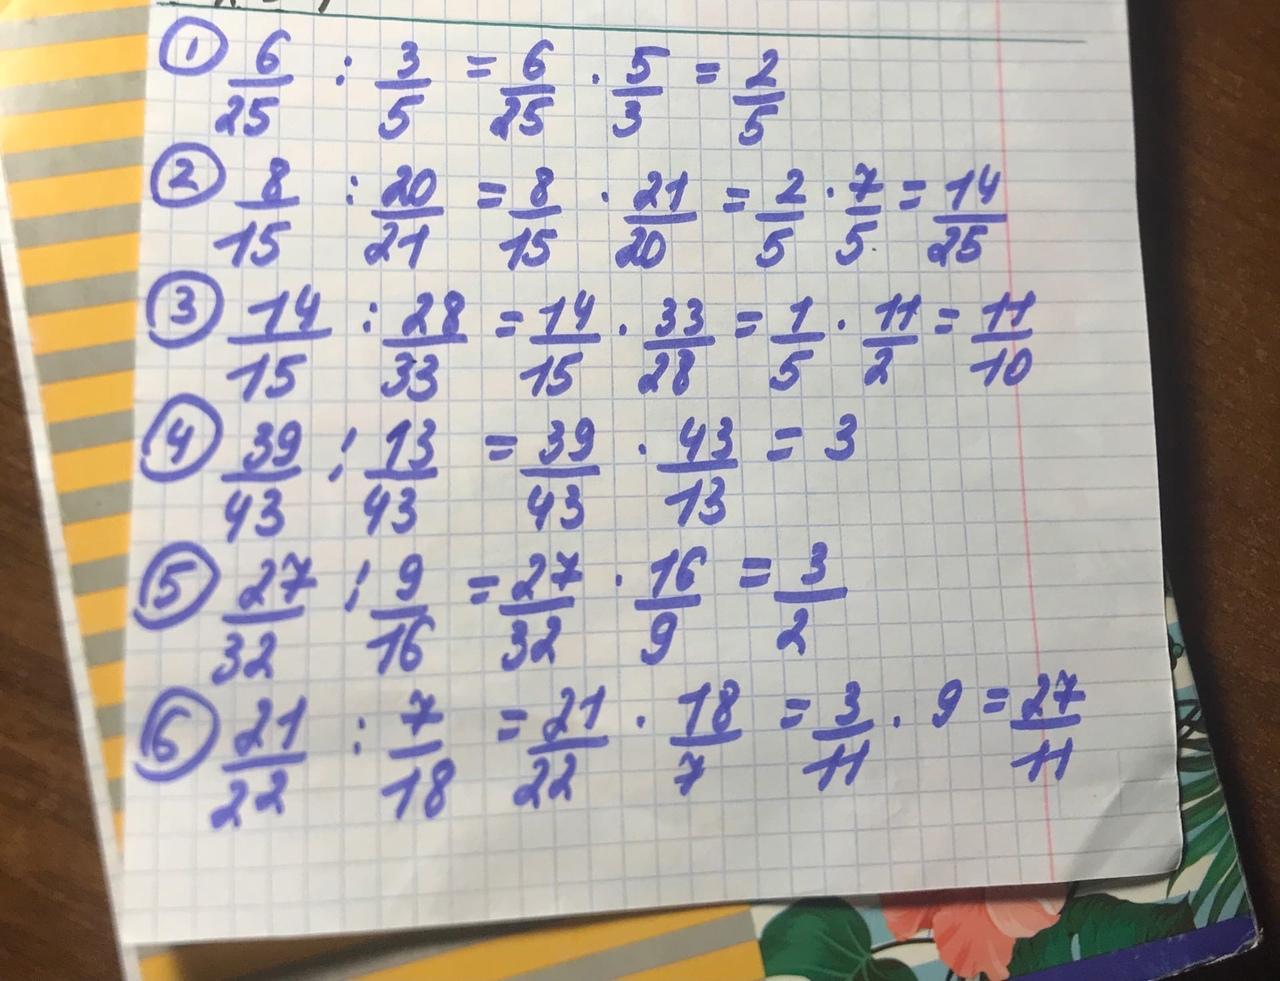 ① 6/25 : 3/5 = 6/25 · 5/3 = 2/5
② 8/15 : 20/21 = 8/15 · 21/20 = 2/5 · 7/5 = 14/25
③ 14/15 : 28/33 = 14/15 · 33/28 = 1/5 · 11/2 = 11/10
④ 39/43 : 13/43 = 39/43 · 43/13 = 3
⑤ 27/32 : 9/16 = 27/32 · 16/9 = 3/2
⑥ 21/22 : 7/18 = 21/22 · 18/7 = 3/11 · 9 = 27/11